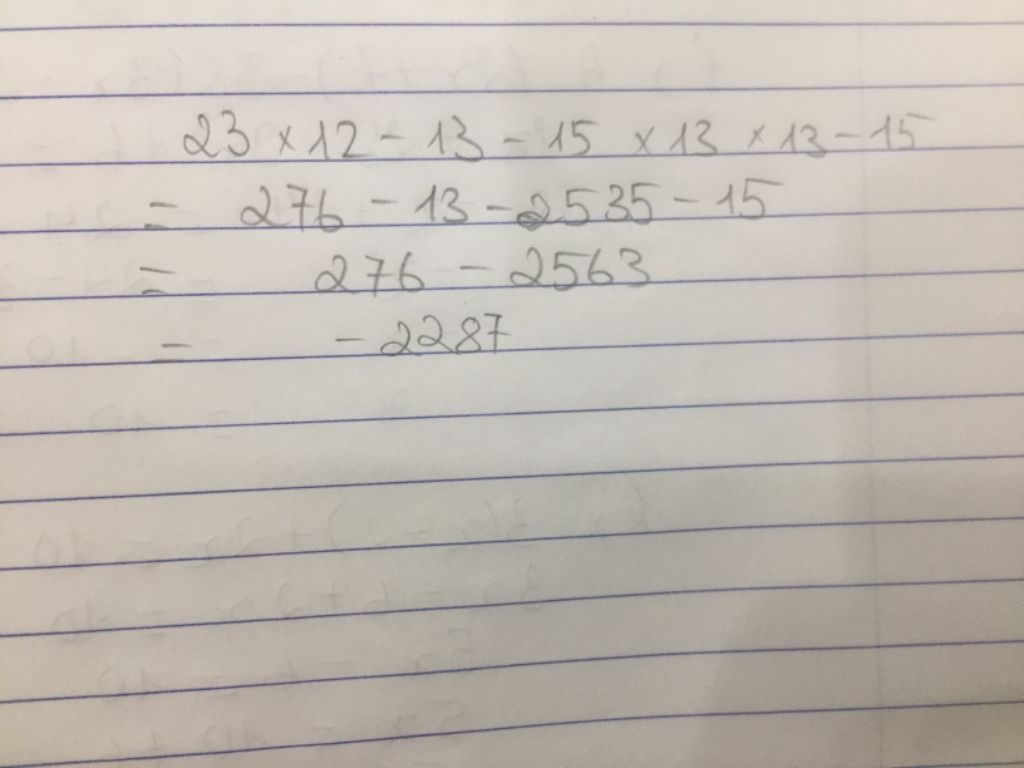 23 × 12 - 13 - 15 × 13 × 13 - 15
= 276 - 13 - 2535 - 15
= 276 - 2563
= - 2287